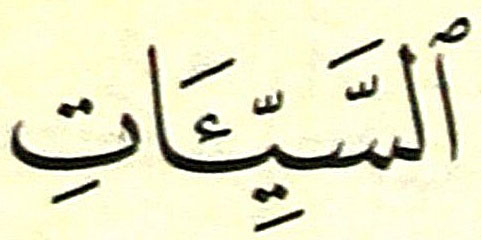 ٱلسَّيِّـَٔاتِ